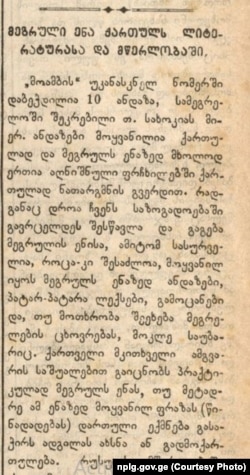 მეგრული ენა ქართულს ლიტე-
რატურასა და მწერლობაში.
„მოამბის“ უკანასკნელ ნომერში
დაბეჭდილია 10 ანდაზა, სამეგრე-
ლოში შეკრებილი თ. სახოკიას მი-
ერ. ანდაზები მოყვანილია ქართუ-
ლად და მეგრულს ენაზედ მხოლოდ
ერთია აღნიშნული ფრჩხილებში ქარ-
თულად ნათარგმნის გვერდით. რად-
განაც დროა ჩვენს საზოგადოებაში
გავრცელდეს შესწავლა და გაგება
მეგრულის ენისა, ამიტომ სასურვე-
ლია, როცა-კი შესაძლოა, მოყვანილ
იყოს მეგრულს ენაზედ ანდაზები,
პატარ-პატარა ლექსები, გამოცანები
და, თუ მოთხრობა შეეხება მეგრე-
ლების ცხოვრებას, მოკლე საუბა-
რიც. ქართველი მკითხველი ამგვა-
რის საშუალებით გაიცნობს პრაქტი-
კულად მეგრულს ენას, თუ მეტად-
რე ამ ენაზედ მოყვანილ ფრაზას (წი-
ნადადებას) დართული ექმნება გასა-
ჭირს ადგილას ახსნა ან გადმოქარ-
თულება.
nplg.gov.ge (Courtesy Photo)